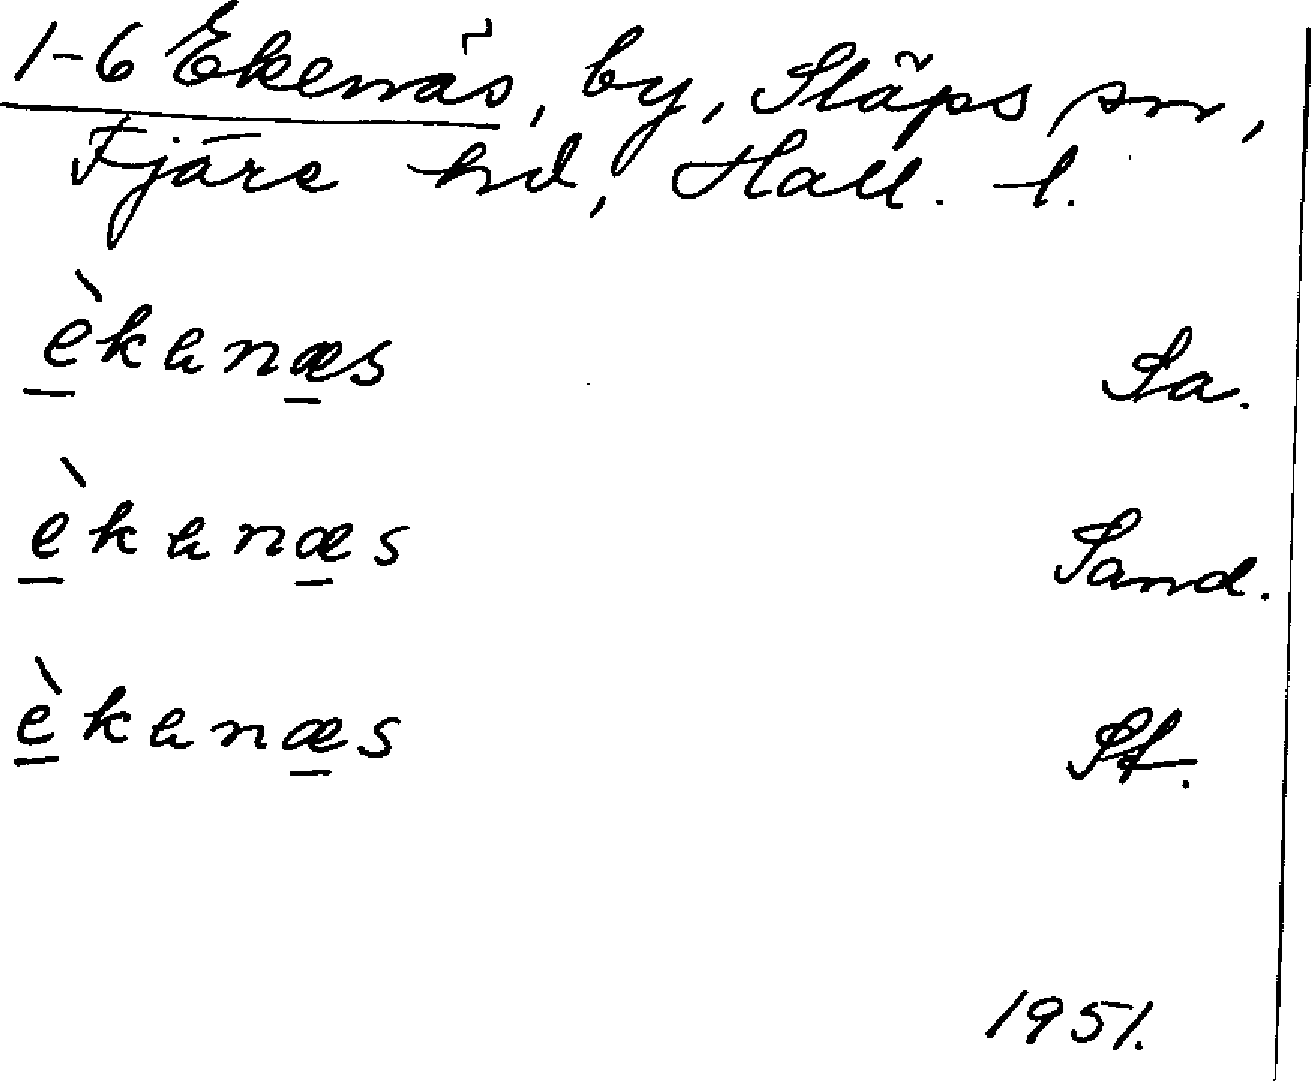 1-6 Ekenäs, by, Släps sn,
Fjäre hd, Hall. l.
èkenæs Sa.
èkenæs Sand.
èkenæs St.
1951.